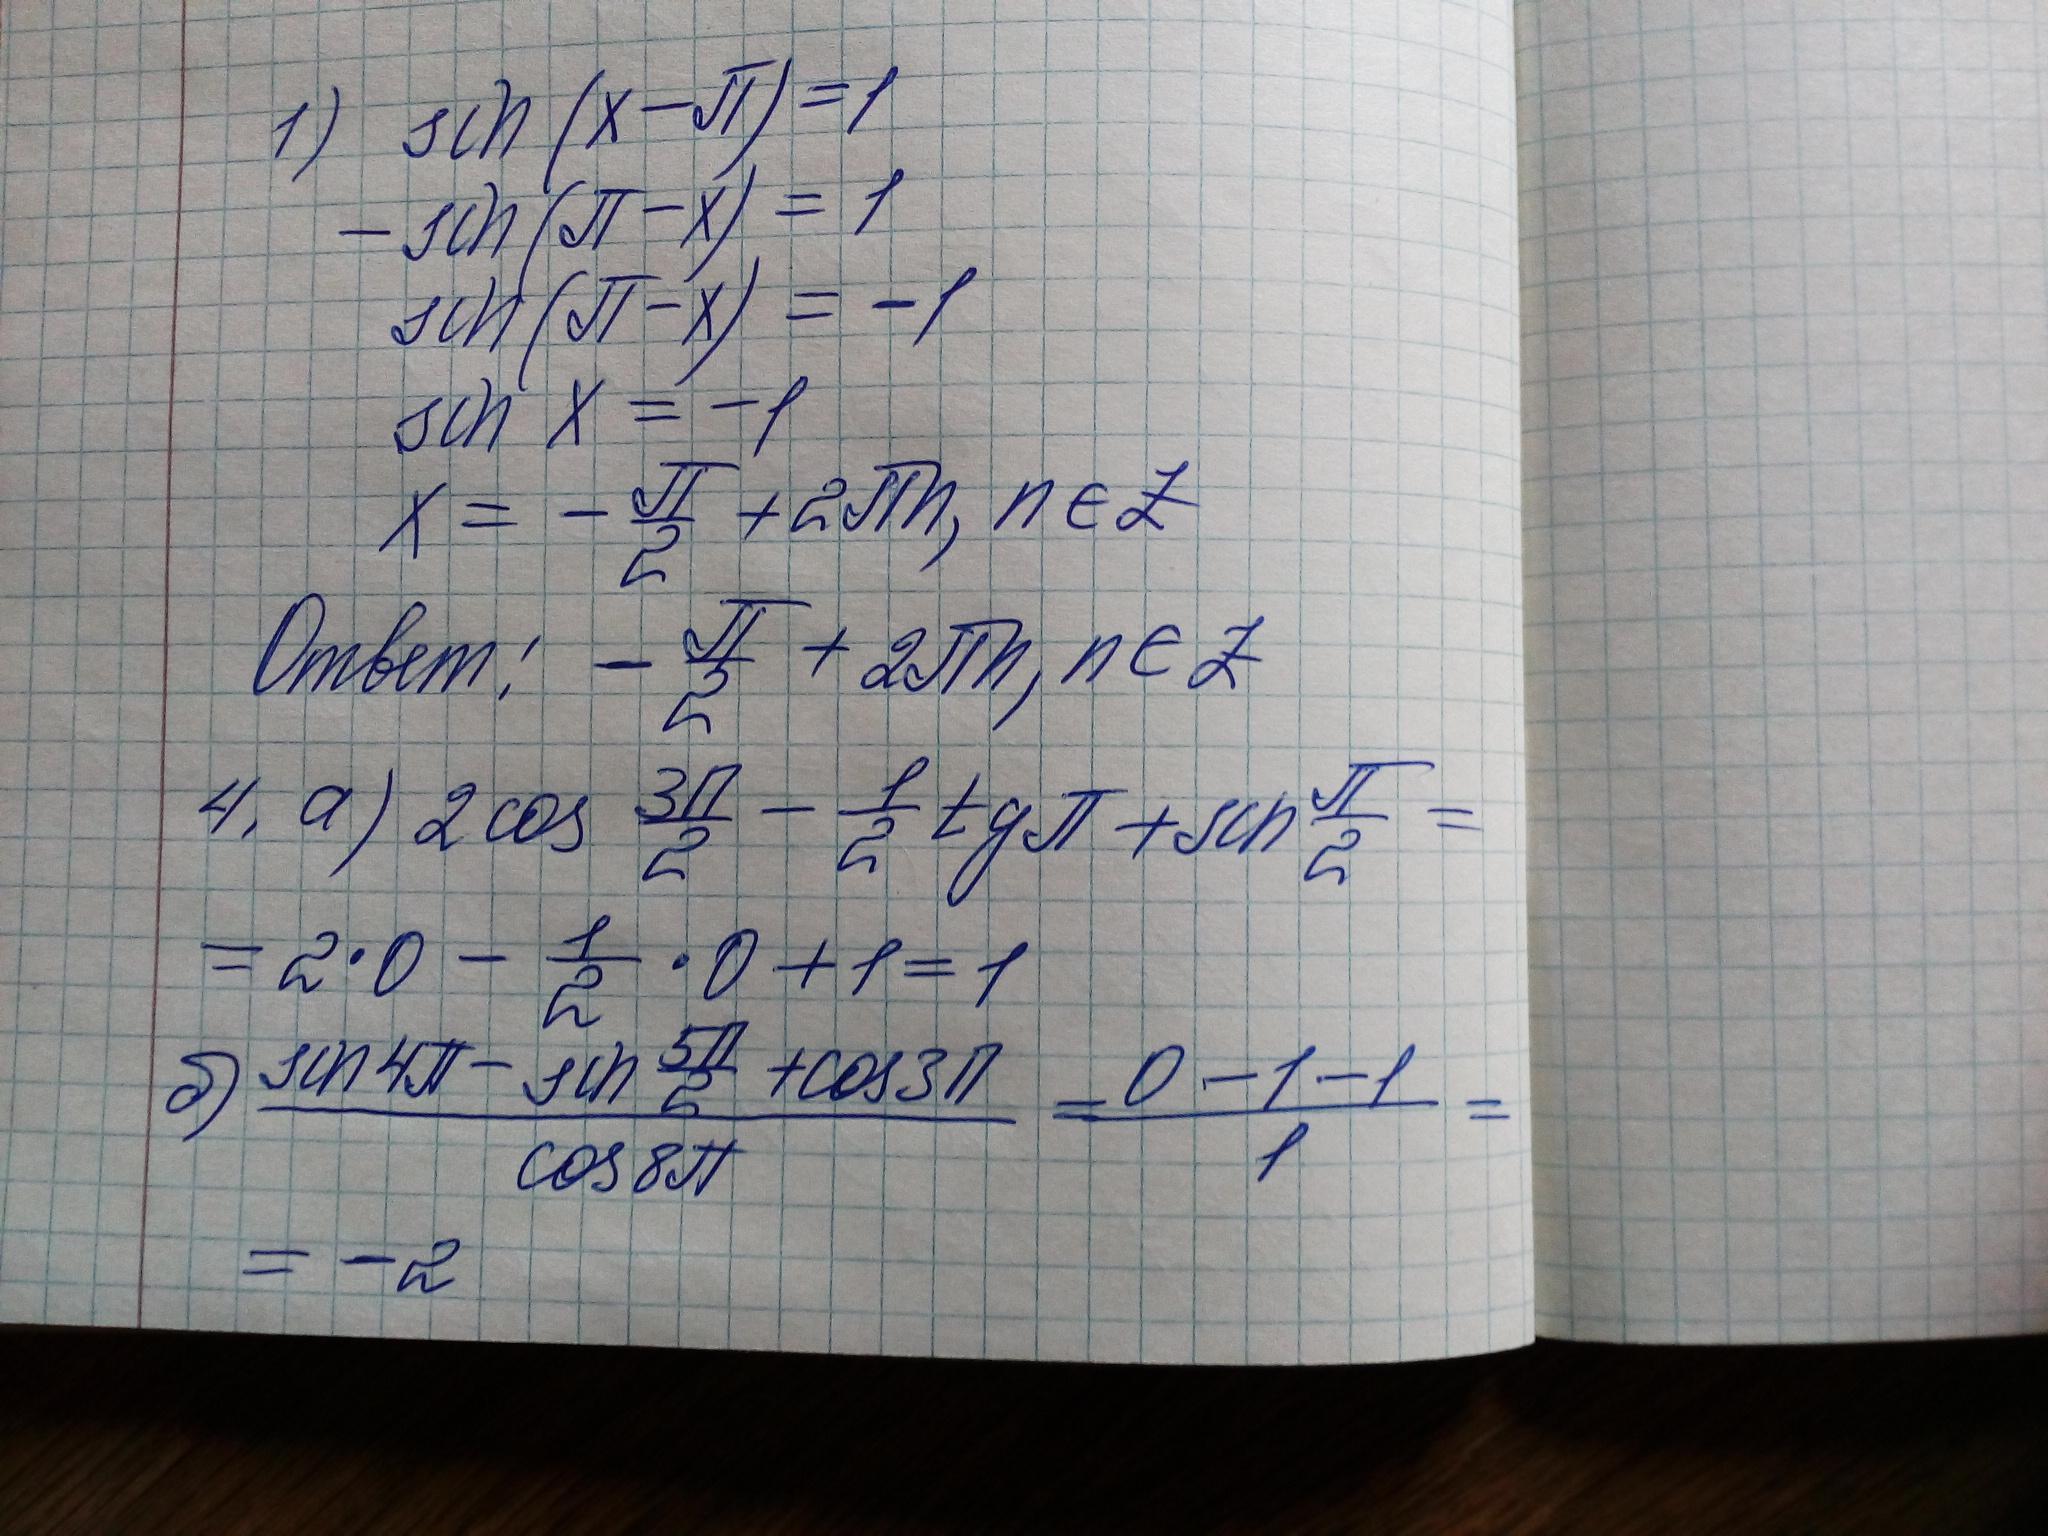 1) sin (x − π) = 1
− sin (π − x) = 1
sin (π − x) = −1
sin x = −1
x = − π/2 + 2πn, n ∈ Z
Ответ: − π/2 + 2πn, n ∈ Z
4. а) 2 cos 3π/2 − 1/2 tg π + sin π/2 =
= 2 · 0 − 1/2 · 0 + 1 = 1
б) (sin 4π − sin 5π/2 + cos 3π)/(cos 8π) = (0 − 1 − 1)/1 =
= −2